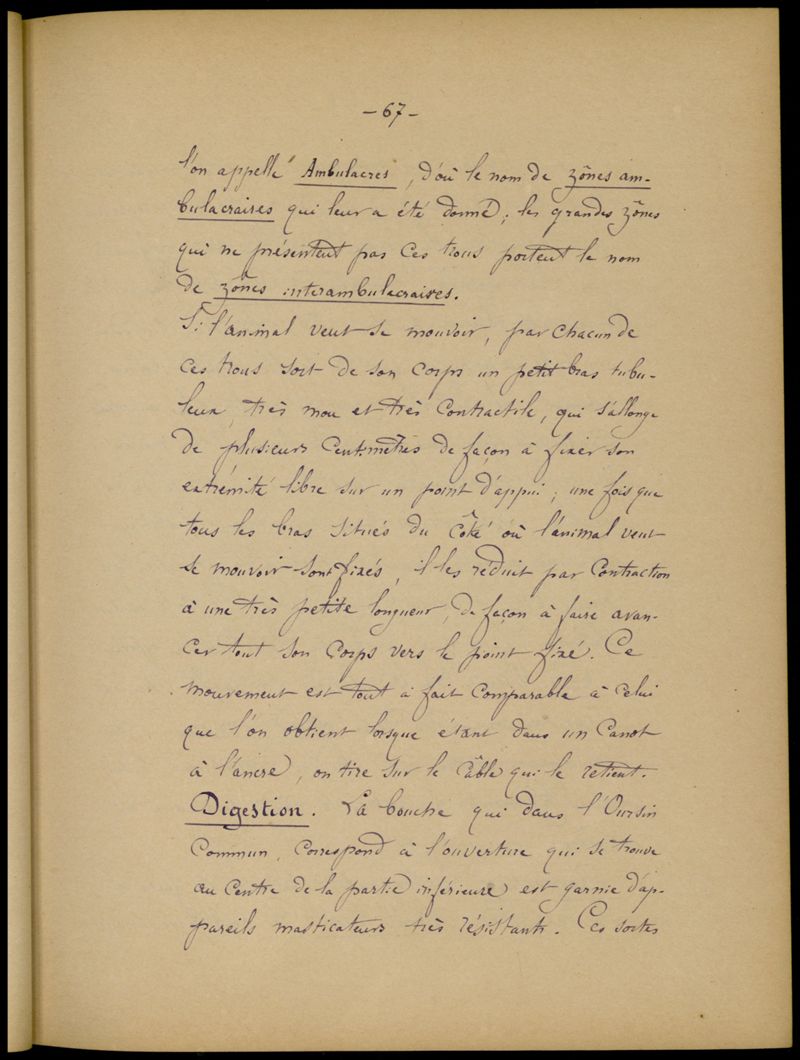 - 67 -
l'on appelle Ambulacres, d'où le nom de zônes am-
bulacraires qui leur a été donné; les grandes zônes
qui ne présentent pas ces trous portent le nom
de zônes interambulacraires.
Si l'animal veut se mouvoir, par chacun de
ces trous sort de son corps un petit bras tubu-
leux, très mou et très contractile, qui s'allonge
de plusieurs centimètres de façon à fixer son
extrémité libre sur un point d'appui; une fois que
tous les bras situés du côté où l'animal veut
se mouvoir sont fixés, il les réduit par contraction
à une très petite longueur, de façon à faire avan-
cer tout son corps vers le point fixé. Ce
mouvement est tout à fait comparable à celui
que l'on obtient lorsque étant dans un canot
à l'ancre, on tire sur le câble qui le retient.
Digestion. La bouche qui dans l'Oursin
commun, correspond à l'ouverture qui se trouve
au centre de la partie inférieure est garnie d'ap-
pareils masticateurs très résistants. Ces sortes